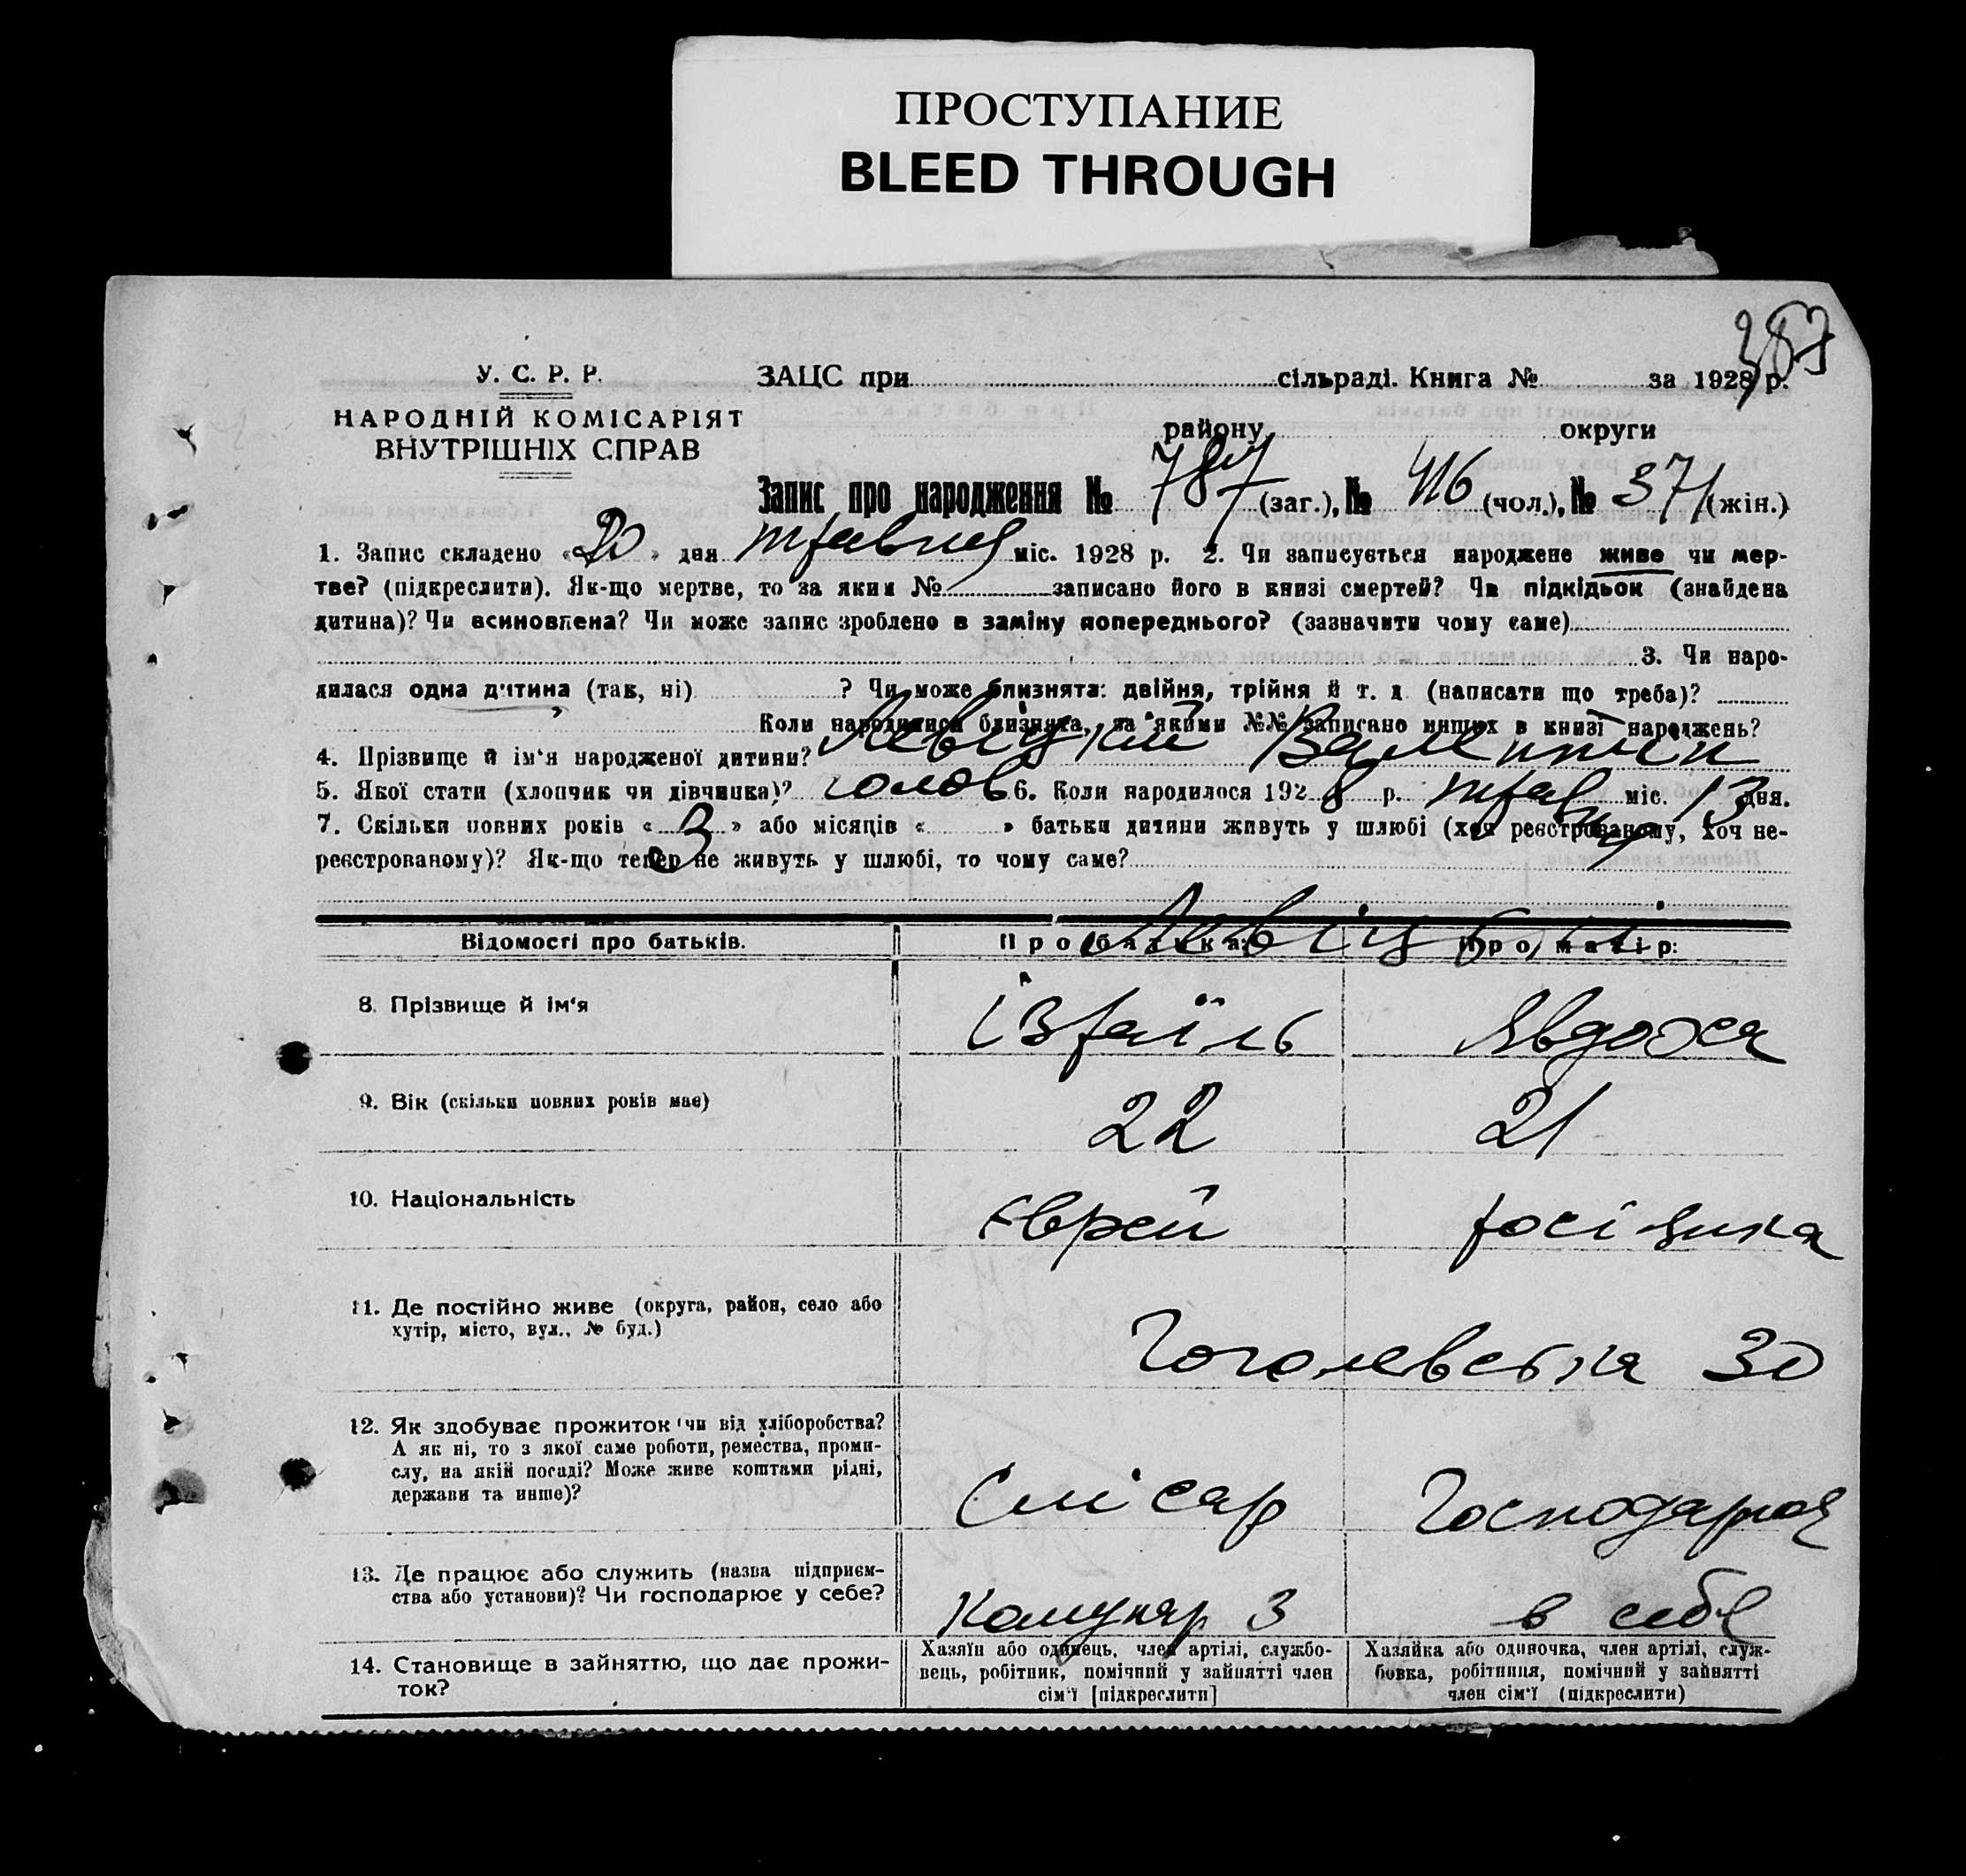 ПРОСТУПАНИЕ
BLEED THROUGH
387
У. С. Р. Р.
НАРОДНІЙ КОМІСАРІЯТ
ВНУТРІШНІХ СПРАВ
ЗАЦС при сільраді. Книга № за 1928 р.
району округи
Запис про народження № 787 (заг.), № 416 (чол.), № 371 (жін.)
1. Запис складено «20» дня травня міс. 1928 р. 2. Чи записується народжене живе чи мер-
тве? (підкреслити). Як-що мертве, то за яким № записано його в книзі смертей? Чи підкідьок (знайдена
дитина)? Чи всиновлена? Чи може запис зроблено в заміну попереднього? (зазначити чому саме)
3. Чи наро-
дилася одна дитина (так, ні) ? Чи може близнята: двійня, трійня й т. д. (написати що треба)?
Коли народилися близнята, за якими №№ записано инших в книзі народжень?
4. Прізвище й ім'я народженої дитини? Левіцкий Валентин
5. Якої стати (хлопчик чи дівчинка)? чолов 6. Коли народилося 1928 р. травня міс. 13 дня.
7. Скільки повних років «3» або місяців « » батьки дитини живуть у шлюбі (хоч реєстрованому, хоч не-
реєстрованому)? Як-що тепер не живуть у шлюбі, то чому саме?
Відомості про батьків. Про батька: Про матір:
Левіцькі
8. Прізвище й ім'я Ізраїль Явдоха
9. Вік (скільки повних років має) 22 21
10. Національність Єврей росіянка
11. Де постійно живе (округа, район, село або
хутір, місто, вул., № буд.)
Гоголевська 30
12. Як здобуває прожиток чи від хліборобства?
А як ні, то з якої саме роботи, ремества, проми-
слу, на якій посаді? Може живе коштами рідні,
держави та инше)?
Слісар Господарює
13. Де працює або служить (назва підприєм-
ства або установи)? Чи господарює у себе?
Комунар 3 в себе
14. Становище в зайняттю, що дає прожи-
ток?
Хазяїн або одинець, член артілі, службо-
вець, робітник, помічний у зайнятті член
сім'ї [підкреслити]
Хазяйка або одиночка, член артілі, служ-
бовка, робітниця, помічний у зайнятті
член сім'ї (підкреслити)